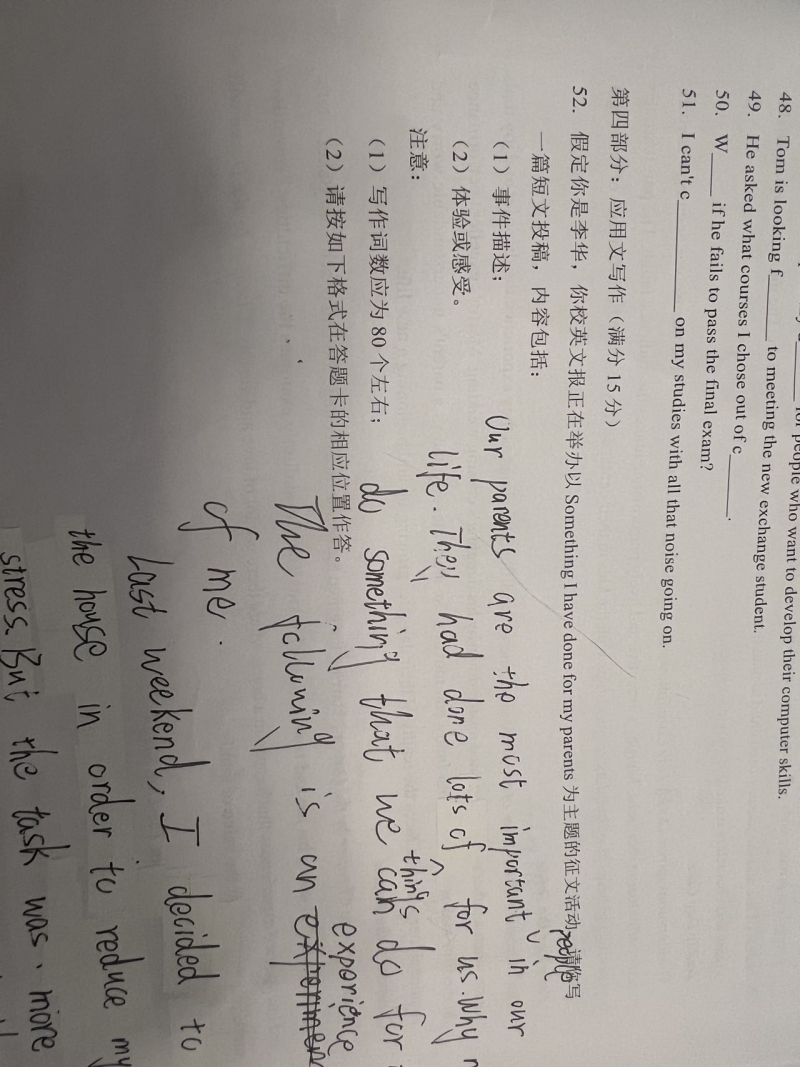 for people who want to develop their computer skills.
48. Tom is looking f______ to meeting the new exchange student.
49. He asked what courses I chose out of c______.
50. W____ if he fails to pass the final exam?
51. I can't c________ on my studies with all that noise going on.
第四部分：应用文写作（满分 15 分）
52. 假定你是李华，你校英文报正在举办以 Something I have done for my parents 为主题的征文活动，请你写
一篇短文投稿，内容包括：
（1）事件描述；
（2）体验或感受。
注意：
（1）写作词数应为 80 个左右；
（2）请按如下格式在答题卡的相应位置作答。
Our parents are the most important people in our
life. They had done lots of things for us. Why
do something that we can do for
The following is an experience
of me.
Last weekend, I decided to
the house in order to reduce my
stress. But the task was more